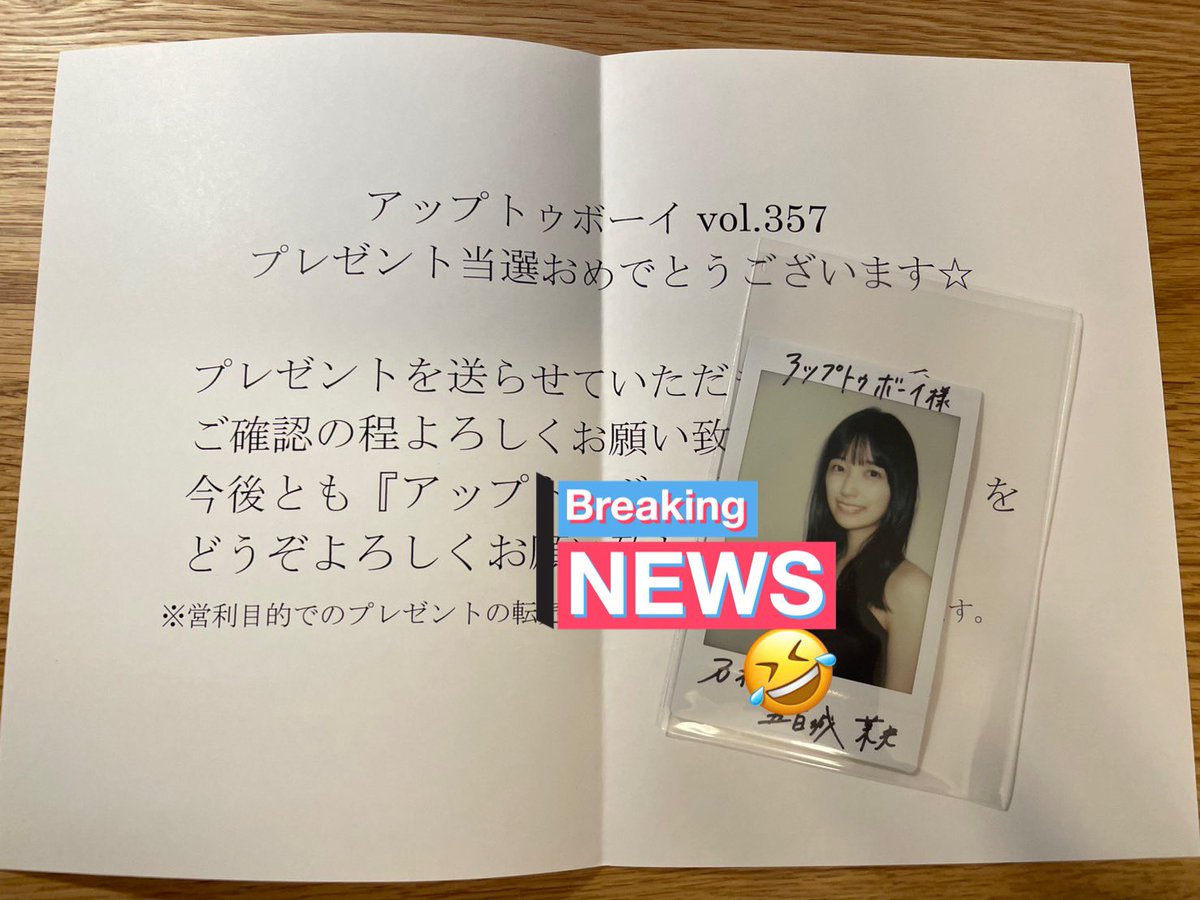 アップトゥボーイ vol.357
プレゼント当選おめでとうございます☆
プレゼントを送らせていただ
ご確認の程よろしくお願い致
今後とも『アップト を
どうぞよろしくお願い
※営利目的でのプレゼントの転 す。
アップトゥボーイ様
Breaking
NEWS
五百城 茉央